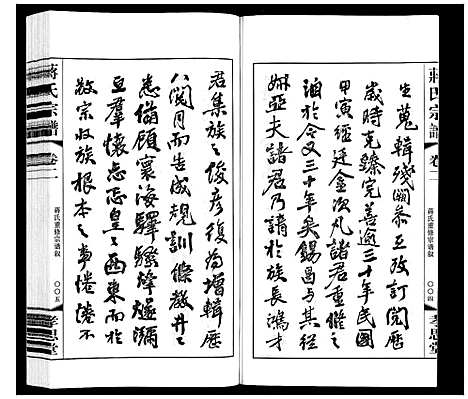 蔣氏宗譜 卷二 蔣氏重修宗譜敘 〇〇四 孝思堂
生蒐輯殘闕恭互改訂閱歷
歲時克臻完善逾三十年民國
甲寅經廷金次凡諸君重脩之
洎於今又三十年矣錫昌与其從
姊亞夫諸君乃請於族長鴻才
君集族之俊彥復為增輯歷
八閱月而告成規訓條教井井
悉備顧寰海驛騷烽燧瀰
亘羣懷忐忑皇皇西東而於
敬宗收族根本之事惓惓不
蔣氏宗譜 卷二 蔣氏重修宗譜敘 〇〇五 孝思堂